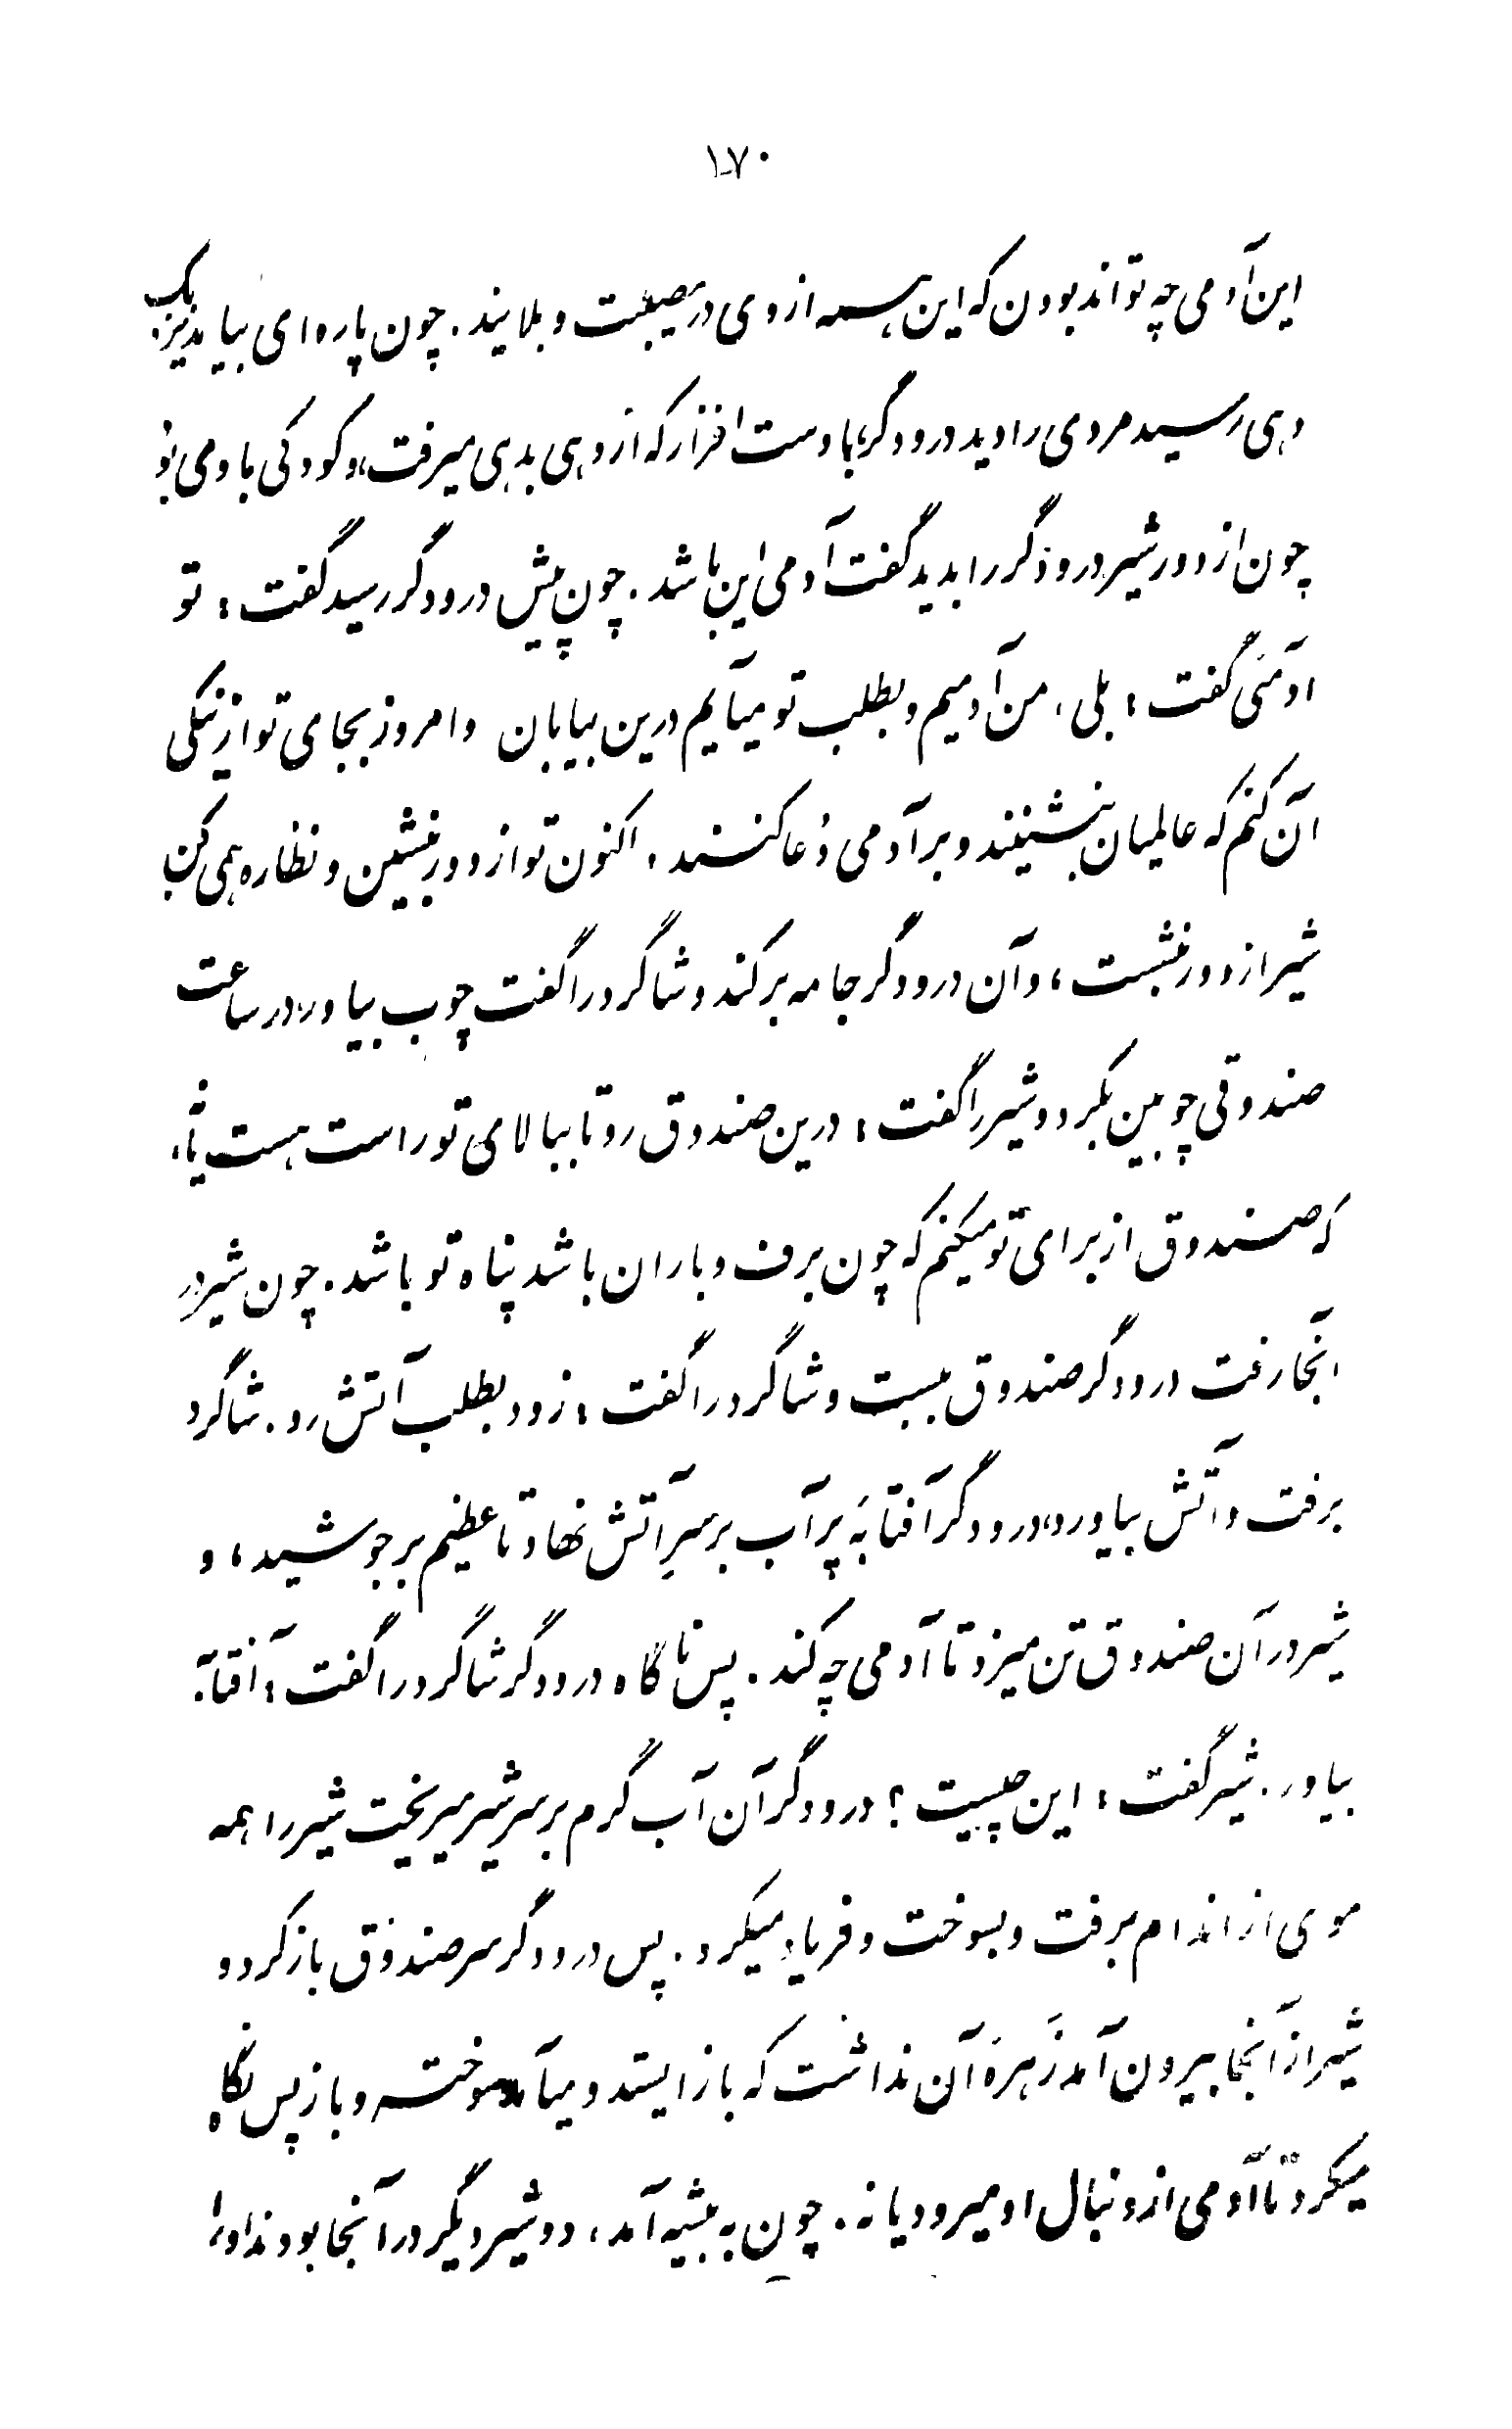 ۱۷۰
این آدمی چه تواند بودن که این همه از وی در مصیبت و بلایند. چون پاره‌ای بیامد نزدیک
دهی رسید مردی را دید درودگر، با دست افزار که از دهی بدهی میرفت، و کودکی با وی بود
چون از دور شیر درودگر را بدید گفت آدمی این باشد. چون پیش درودگر رسید گفت: تو
آدمئی گفت: بلی، من آدمیم و بطلب تو میآیم درین بیابان و امروز بجای تو از نیکی
آن کنم که عالمیان بنشینند و بر آدمی دعا کنند. اکنون تو از دور بنشین و نظاره همی کن
شیر از دور بنشست، و آن درودگر جامه برکند و شاگرد را گفت چوب بیاور، در ساعت
صندوقی چوبین بکرد و شیر را گفت: درین صندوق رو تا ببالای تو راست هست یا نه،
که صندوق از برای تو میکنم که چون برف و باران باشد پناه تو باشد. چون شیر در
آنجا رفت درودگر صندوق ببست و شاگرد را گفت: زود بطلب آتش رو. شاگرد
برفت و آتش بیاورد، درودگر آفتابهٔ پر آب بر سرِ آتش نهاد تا عظیم برجوشید، و
شیر در آن صندوق تن میزد تا آدمی چه کند. پس ناگاه درودگر شاگرد را گفت: آفتابه
بیاور. شیر گفت: این چیست؟ درودگر آن آب گرم بر سر شیر میریخت شیر را همه
موی از اندام برفت و بسوخت و فریاد میکرد. پس درودگر سر صندوق باز کرد و
شیر از آنجا بیرون آمد زَهرهٔ آن نداشت که باز ایستد و میآمد سوخته و باز پس نگاه
میکرد تا آدمی از دنبال او میرود یا نه. چون به بیشه آمد، دو شیر دیگر در آنجا بودند او را